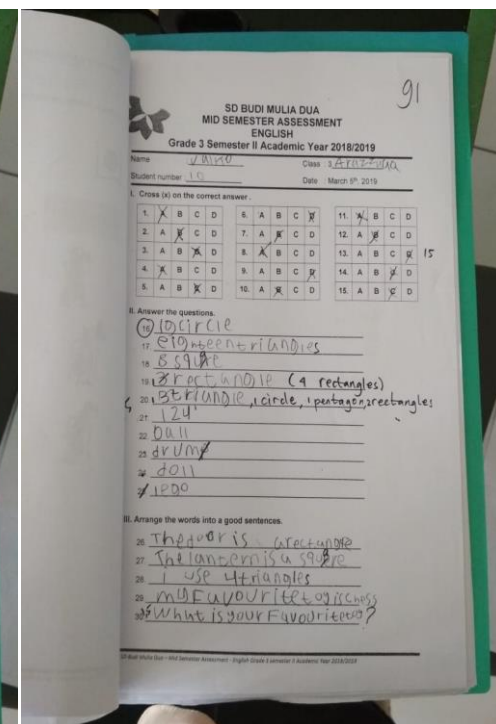 91
SD BUDI MULIA DUA
MID SEMESTER ASSESSMENT
ENGLISH
Grade 3 Semester II Academic Year 2018/2019
Name
Class : 3
Student number 10
Date : March 5th, 2019
I. Cross (x) on the correct answer.
1. A B C D 6. A B C D 11. A B C D
2. A B C D 7. A B C D 12. A B C D
3. A B C D 8. A B C D 13. A B C D 15
4. A B C D 9. A B C D 14. A B C D
5. A B C D 10. A B C D 15. A B C D
II. Answer the questions.
16 10 circle
17. eighteen triangles
18. 8 square
19. rectangle (4 rectangles)
20. triangle, 1 circle, 1 pentagon, 2 rectangles
21. 124
22. ball
23. drum
24. doll
25. lego
III. Arrange the words into a good sentences.
26. The door is a rectangle
27. The lantern is a square
28. I use 4 triangles
29. my Favourite toy is chess
30. What is your Favourite toy?
SD Budi Mulia Dua – Mid Semester Assessment - English Grade 3 semester II Academic Year 2018/2019